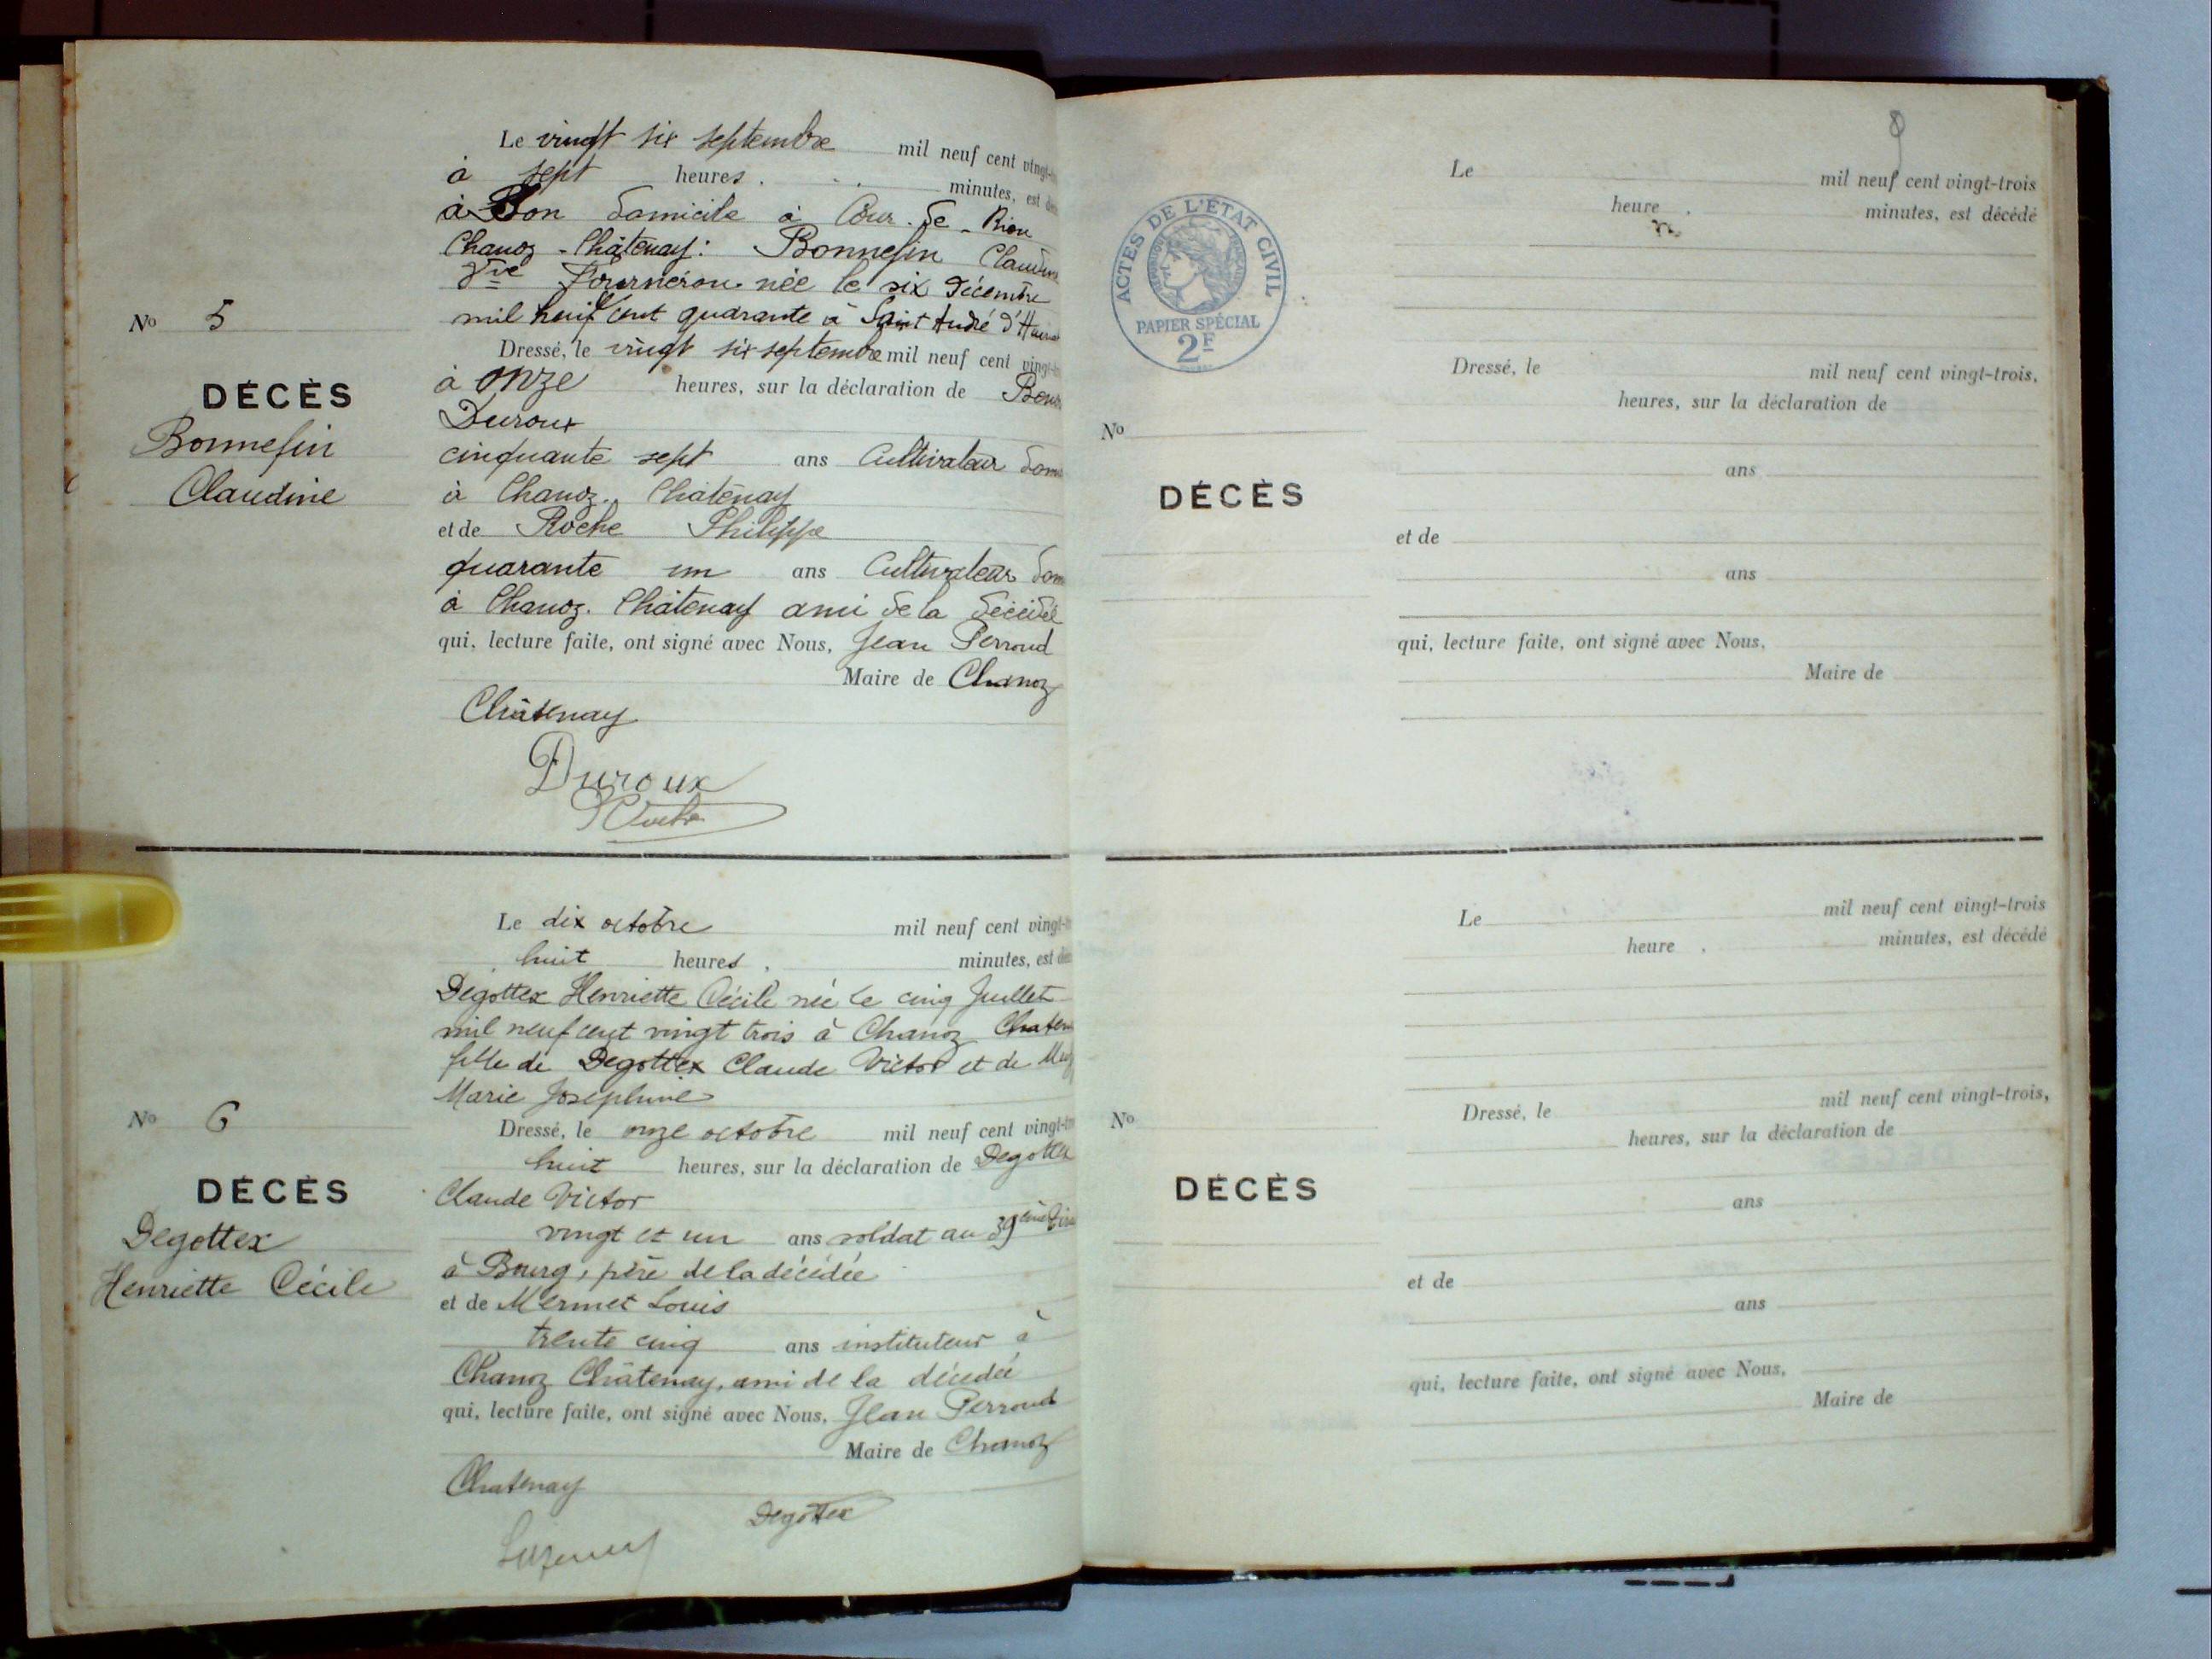 Le vingt six septembre mil neuf cent vingt-
à sept heures. minutes, est
à Son domicile à Cour. de - Rion
Chanoz - Châtenay: Bonnefin Claudine
Vve Fourneron née le six Décembre
mil huit cent quarante à Saint André d'
No 5
Dressé, le vingt six septembre mil neuf cent vingt-
à onze heures, sur la déclaration de
DÉCÈS
Duroux
Bonnefin
cinquante sept ans Cultivateur
Claudine
à Chanoz. Châtenay
et de Roche Philippe
quarante un ans Cultivateur
à Chanoz. Châtenay ami de la décédée
qui, lecture faite, ont signé avec Nous, Jean Perroud
Maire de Chanoz
Châtenay
Duroux
Le dix octobre mil neuf cent vingt-
huit heures, minutes, est
Degottex Henriette Cécile née le cinq Juillet
mil neuf cent vingt trois à Chanoz Chaten
fille de Degottex Claude Victor et de
Marie Joséphine
No 6
Dressé, le onze octobre mil neuf cent vingt-
huit heures, sur la déclaration de Degottex
DÉCÈS
Claude Victor
Degottex
vingt et un ans soldat au
Henriette Cécile
à Bourg, père de la décédée
et de Mermet Louis
trente cinq ans instituteur à
Chanoz Châtenay, ami de la décédée
qui, lecture faite, ont signé avec Nous, Jean Perroud
Maire de Chanoz
Chatenay
Degottex
Le mil neuf cent vingt-trois
heure . minutes, est décédé
ACTES DE L'ÉTAT CIVIL
PAPIER SPÉCIAL
2F
Dressé, le mil neuf cent vingt-trois,
heures, sur la déclaration de
No
ans
DÉCÈS
et de
ans
qui, lecture faite, ont signé avec Nous,
Maire de
Le mil neuf cent vingt-trois
heure . minutes, est décédé
No
Dressé, le mil neuf cent vingt-trois,
heures, sur la déclaration de
DÉCÈS
ans
et de
ans
qui, lecture faite, ont signé avec Nous,
Maire de